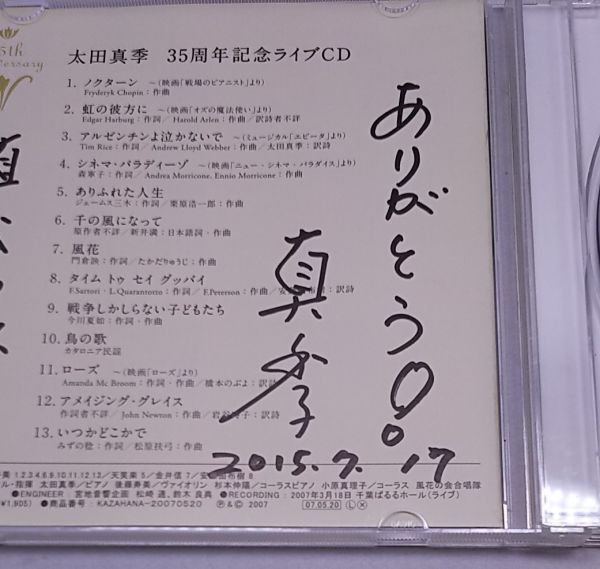 5th
太田真季 35周年記念ライブCD
1. ノクターン ～(映画「戦場のピアニスト」より)
Fryderyk Chopin：作曲
2. 虹の彼方に ～(映画「オズの魔法使い」より)
Edgar Harburg：作詞／Harold Arlen：作曲／訳詩者不詳
3. アルゼンチンよ泣かないで ～(ミュージカル「エビータ」より)
Tim Rice：作詞／Andrew Lloyd Webber：作曲／太田真季：訳詩
4. シネマ・パラディーゾ ～(映画「ニュー・シネマ・パラダイス」より)
森寧子：作詞／Andrea Morricone, Ennio Morricone：作曲
5. ありふれた人生
ジェームス三木：作詞／栗原浩一郎：作曲
6. 千の風になって
原作者不詳／新井満：日本語詞・作曲
7. 風花
門倉詇：作詞／たかだりゅうじ：作曲
8. タイム トゥ セイ グッバイ
F.Sartori・L.Quarantotto：作詞／F.Peterson：作曲／訳詩
9. 戦争しかしらない子どもたち
今川夏如：作詞・作曲
10. 鳥の歌
カタロニア民謡
11. ローズ ～(映画「ローズ」より)
Amanda Mc Broom：作詞・作曲／橋本のぶよ：訳詩
12. アメイジング・グレイス
作詞者不詳／John Newton：作曲／岩谷時子：訳詩
13. いつかどこかで
みずの稔：作詞／松原技弓：作曲
ありがとう!!
真季
2015.7.17
1.2.3.4.6.9.10.11.12.13／天笑楽 5／金井信 7／安 田布樹 8
ル・指揮 太田真季／ピアノ 後藤寿美／ヴァイオリン 杉本伸陽／コーラスピアノ 小原真理子／コーラス 風花の会合唱隊
●ENGINEER 宮地音響企画 松崎 遥、鈴木 良典 ●RECORDING：2007年3月18日 千葉ぱるるホール(ライブ)
●商品番号：KAZAHANA-20070520 Ⓟ&© 2007 07.05.20 Ⓛ Ⓧ